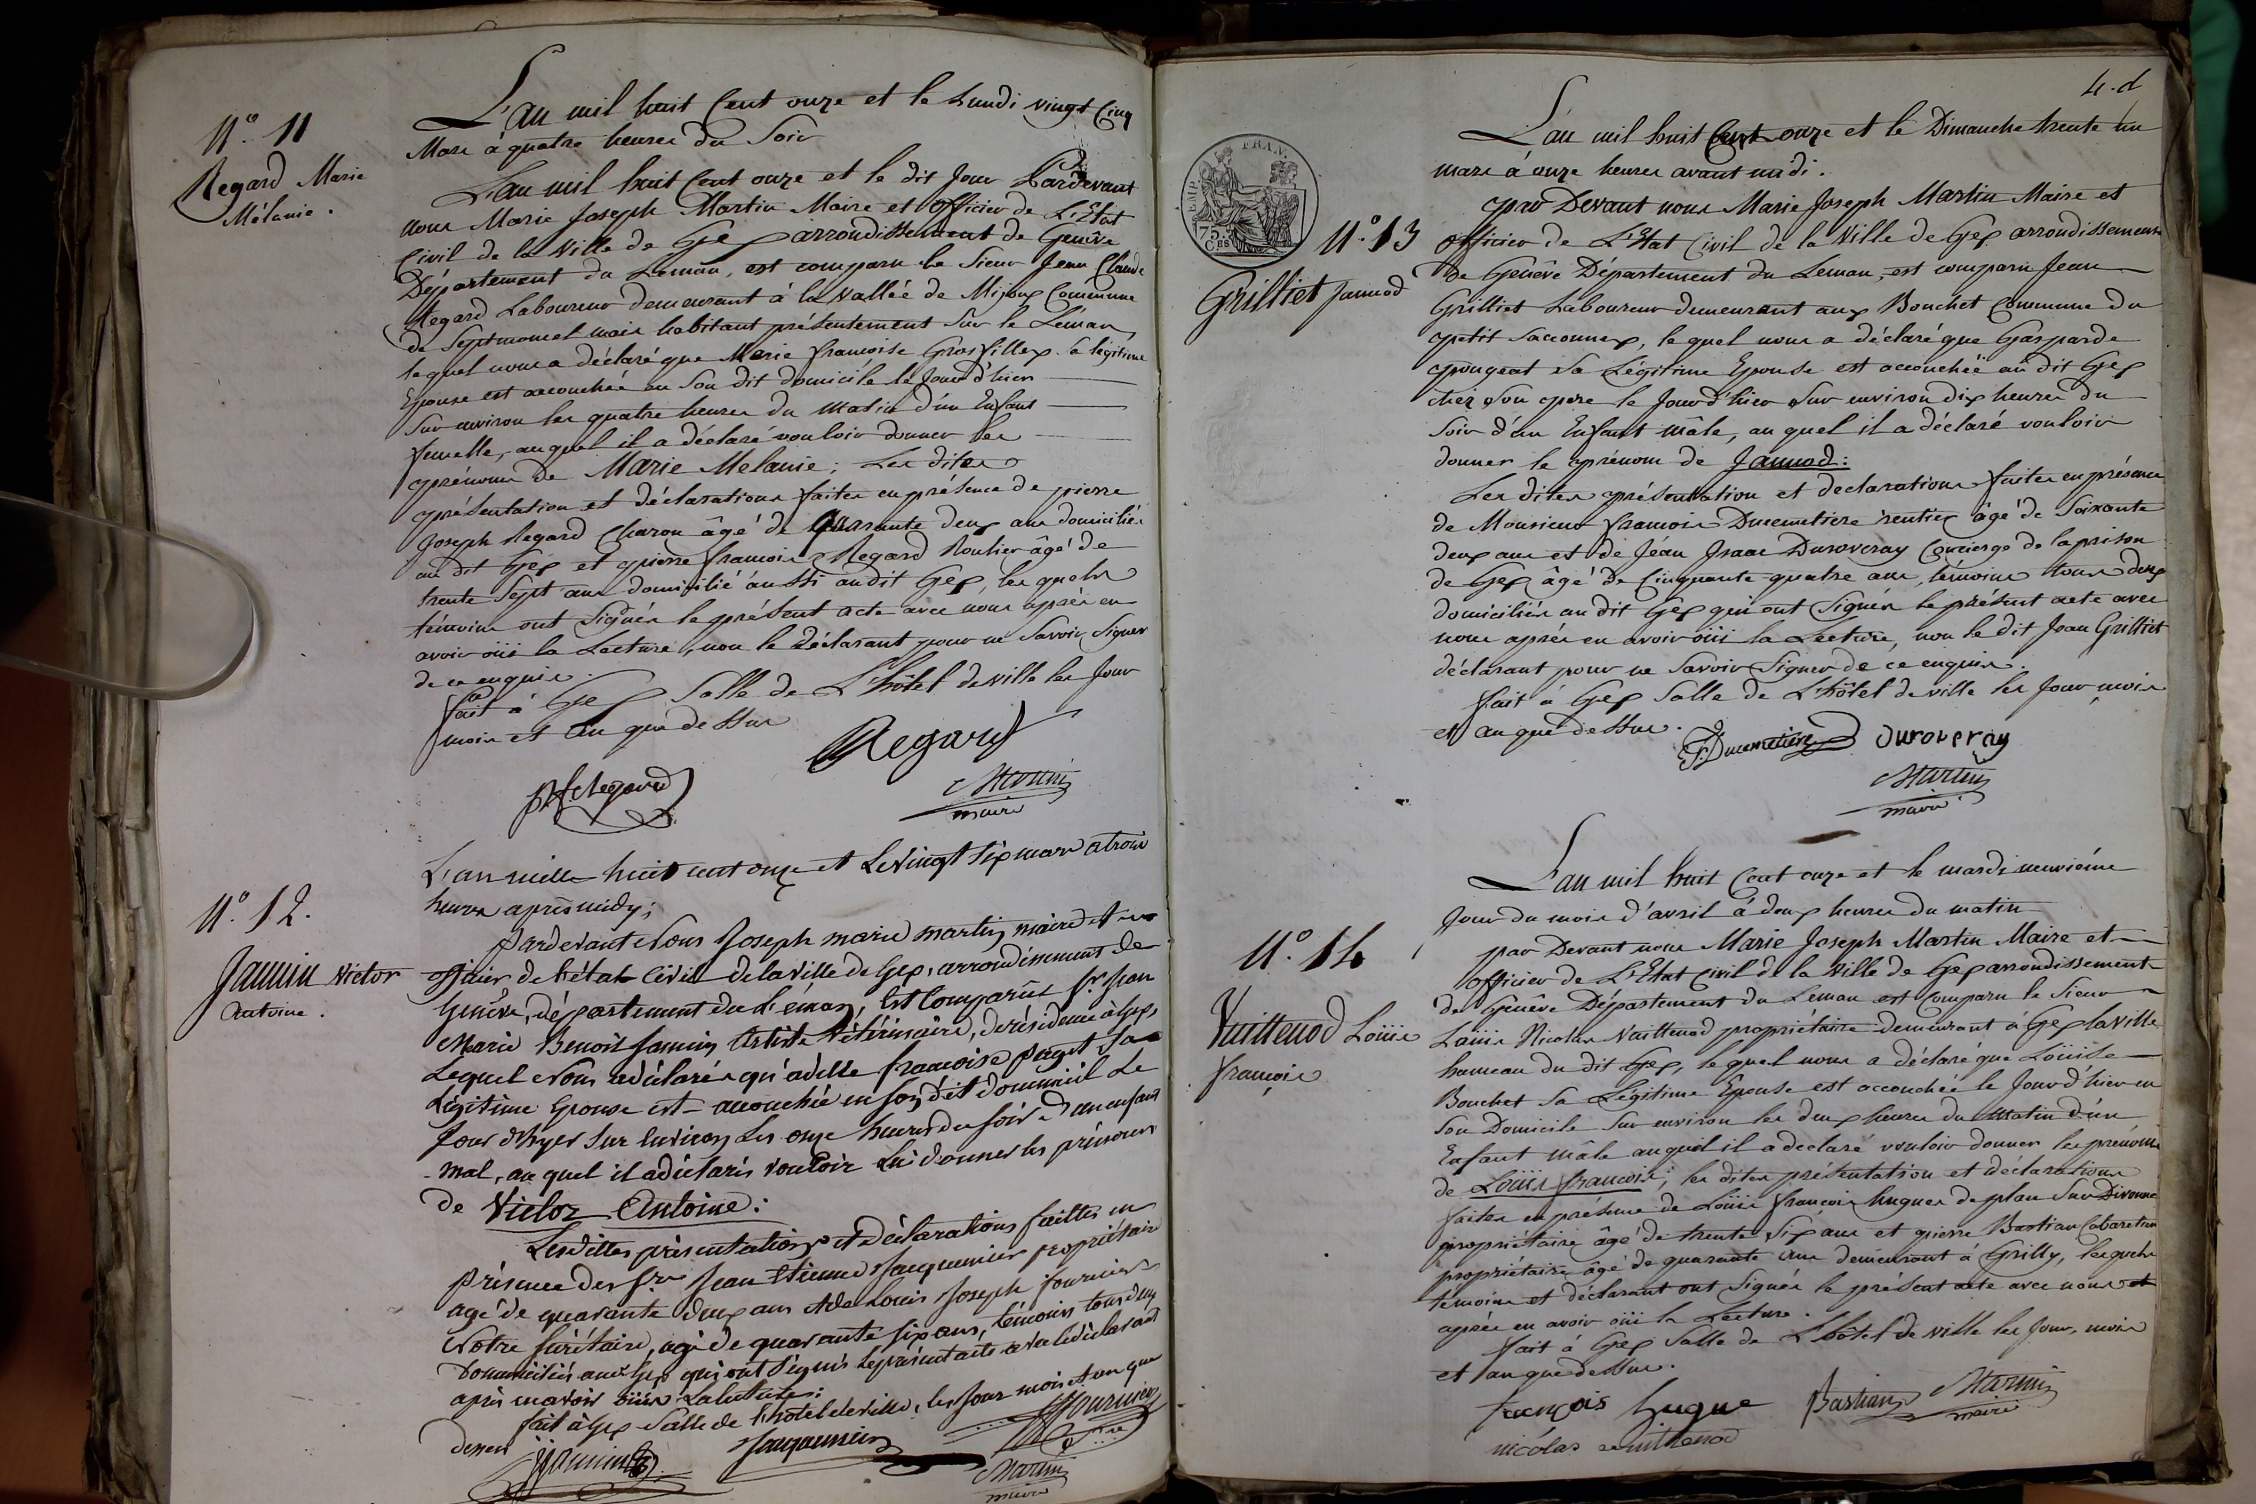 N.° 11
Regard Marie
Mélanie.
L'an mil huit Cent onze et le Lundi vingt Cinq
Mars à quatre heures du Soir
L'an mil huit Cent onze et le dit Jour Pardevant
nous Marie Joseph Martin Maire et Officier de L'Etat
Civil de la Ville de Gex arrondissement de Genève
Département du Leman, est comparu le Sieur Jean Claude
Regard Laboureur demeurant à la Vallée de Mijoux Commune
de Septmoncel mais habitant présentement Sur le Léman
lequel nous a déclaré que Marie françoise Grosfillex sa légitime
Epouse est accouchée en Son dit domicile le Jour d'hier
Sur environ les quatre heures du Matin d'un Enfant
femelle, auquel il a déclaré vouloir donner les
prénoms de Marie Melanie; Les dites
présentation et déclarations faites en présence de pierre
Joseph Regard Charon âgé de quarante deux ans domicilié
au dit Gex et pierre françois Regard Roulier âgé de
trente Sept ans domicilié aussi audit Gex, les quels
témoins ont Signés le présent acte avec nous après en
avoir oüi la Lecture, non le Déclarant pour ne Savoir Signer
de ce enquis.
fait à Gex Salle de L'hôtel de ville les Jour
mois et an que dessus
Regard
Regard
Martin
maire
N.° 12.
Jamin Victor
Antoine.
L'an mille huit cent onze et Le Vingt Six mars a trois
heures après midy;
Pardevant Nous Joseph marie martin maire et
officier de l'état Civil de la ville de Gex, arrondissement de
Genève, département du Léman, Est Comparû Sr. Jean
Marie Benoit Jamin Artiste Vétérinaire, de résidence à Gex,
Lequel Nous a déclaré qu'adelle françoise paget Sa
Légitime Epouse est accouchée en son dit domicile Le
Jour d'hyer Sur Environ Les onze heures du soir d'un enfant
mal, au quel il a déclaré Vouloir Lui donner les prénoms
de Victor Antoine:
Lesdittes présentation et déclarations faittes en
présence des Srs. Jean Etienne Jacquemier propriétaire
agé de quarante deux ans et de Louis Joseph fournier
Notre Sécrétaire, agé de quarante six ans, témoins tous deux
domiciliés audit Gex qui ont Signés le présent acte avec le déclarant
après en avoir oüi La lecture:
fait à Gex Salle de l'hotel de ville, les Jour mois et an que
dessus
Jamin
Jacquemier
Fournier
Martin
maire
4.d
EMP. FRAN.
75.
Ces
N.° 13
Grilliet Jamod
L'an mil huit Cent onze et le Dimanche trente un
mars à onze heures avant midi.
par Devant nous Marie Joseph Martin Maire et
officier de L'Etat Civil de la Ville de Gex arrondissement
de Genêve Département du Leman, est comparu Jean
Grilliet Laboureur demeurant aux Bouchet Commune du
petit Saconnex, le quel nous a déclaré que Gasparde
pougeat Sa Légitime Epouse est accouchée au dit Gex
chez Son pere le Jour d'hier Sur environ dix heures du
Soir d'un Enfant mâle, au quel il a déclaré vouloir
donner le prénom de Jamod:
Les dites présentation et déclarations faites en présence
de Monsieur françois Ducimetiere rentier âgé de Soixante
deux ans et de Jéan Isaac Duroveray Concierge de la prison
de Gex âgé de Cinquante quatre ans, témoins tous deux
domiciliés au dit Gex qui ont Signés le présent acte avec
nous après en avoir oüi la Lecture, non le dit Jean Grilliet
déclarant pour ne Savoir Signer de ce enquis.
fait à Gex Salle de L'hôtel de ville les Jour mois
et an que dessus.
F. Ducimetiere
Duroveray
Martin
maire
N.° 14
Vuittenod Loüis
françois
L'an mil huit Cent onze et le mardi neuvième
Jour du mois d'avril à deux heures du matin
par Devant nous Marie Joseph Martin Maire et
officier de L'Etat Civil de la Ville de Gex arrondissement
de Genève Département du Leman est comparu le Sieur
Louis Nicolas Vuittenod propriétaire demeurant à Gex la Ville
hameau du dit Gex, le quel nous a déclaré que Loüise
Bouchet Sa Légitime Epouse est accouchée le Jour d'hier en
Son Domicile Sur environ les deux heures du matin d'un
Enfant mâle auquel il a déclaré vouloir donner les prénoms
de Loüis françois; les dites présentation et déclarations
faites en présence de Loüis françois hugues de plan Sur Divonne
propriétaire âgé de trente Six ans et pierre Bastian Cabaretier
propriétaire âgé de quarante ans demeurant à Grilly, lesquels
temoins et déclarant ont Signés le présent acte avec nous et
après en avoir oüi la Lecture.
fait à Gex Salle de L'hôtel de ville les Jour, mois
et an que dessus.
françois hugue
Bastian
Martin
maire
nicolas vuittenod